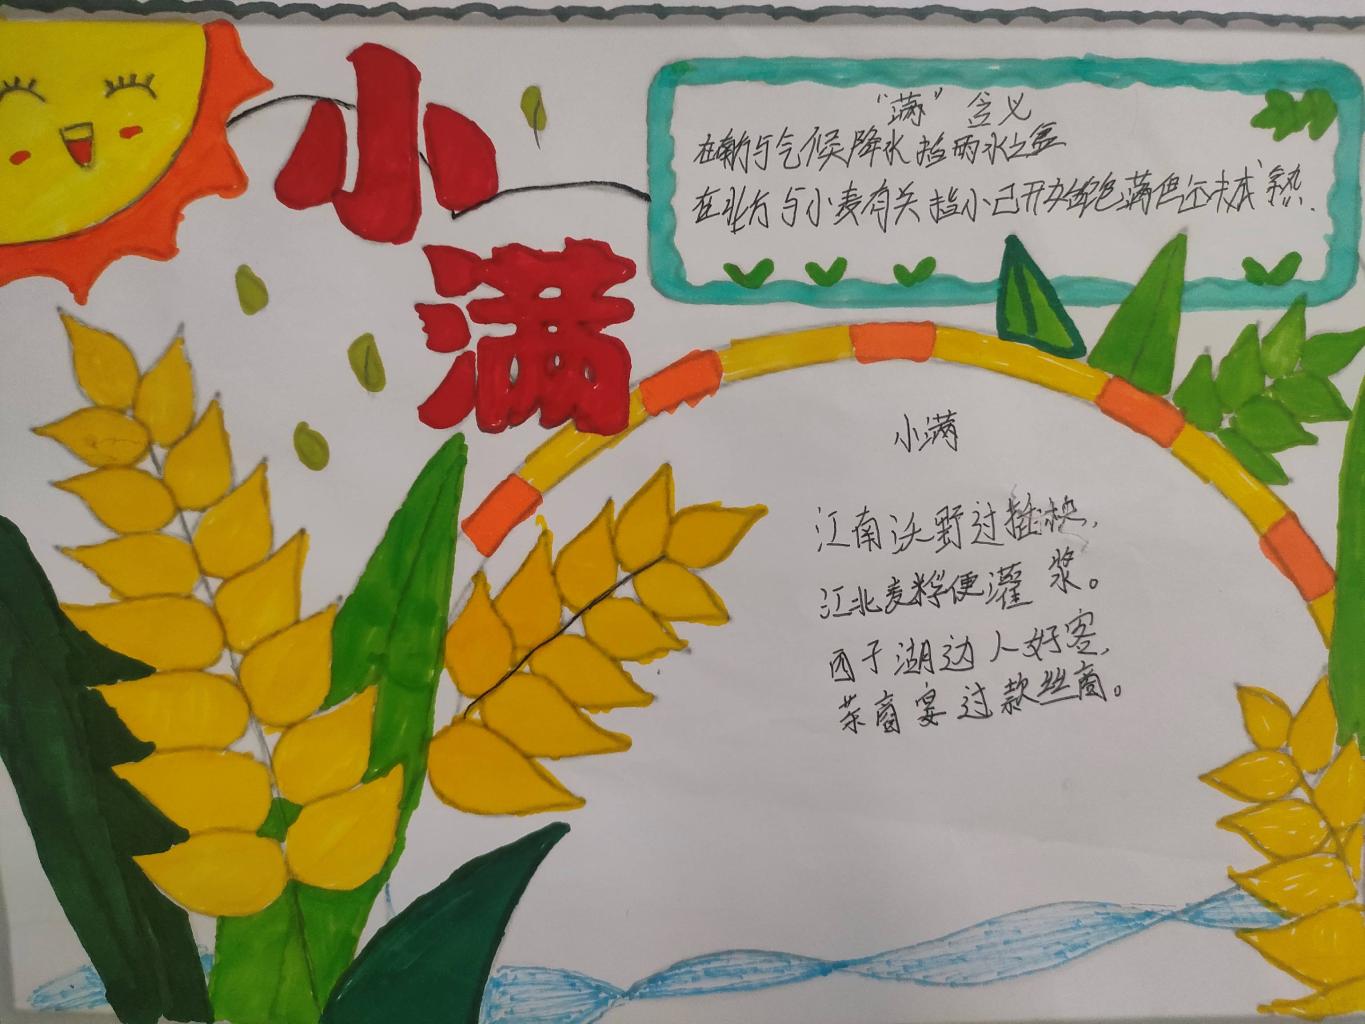 小
满
"满"含义
在南方与气候降水指雨水之盈
在北方与小麦有关指小已开始饱满但还未成熟.
小满
江南沃野过插秧,
江北麦稃便灌浆。
西子湖边人好客,
茶商宴过款丝商。